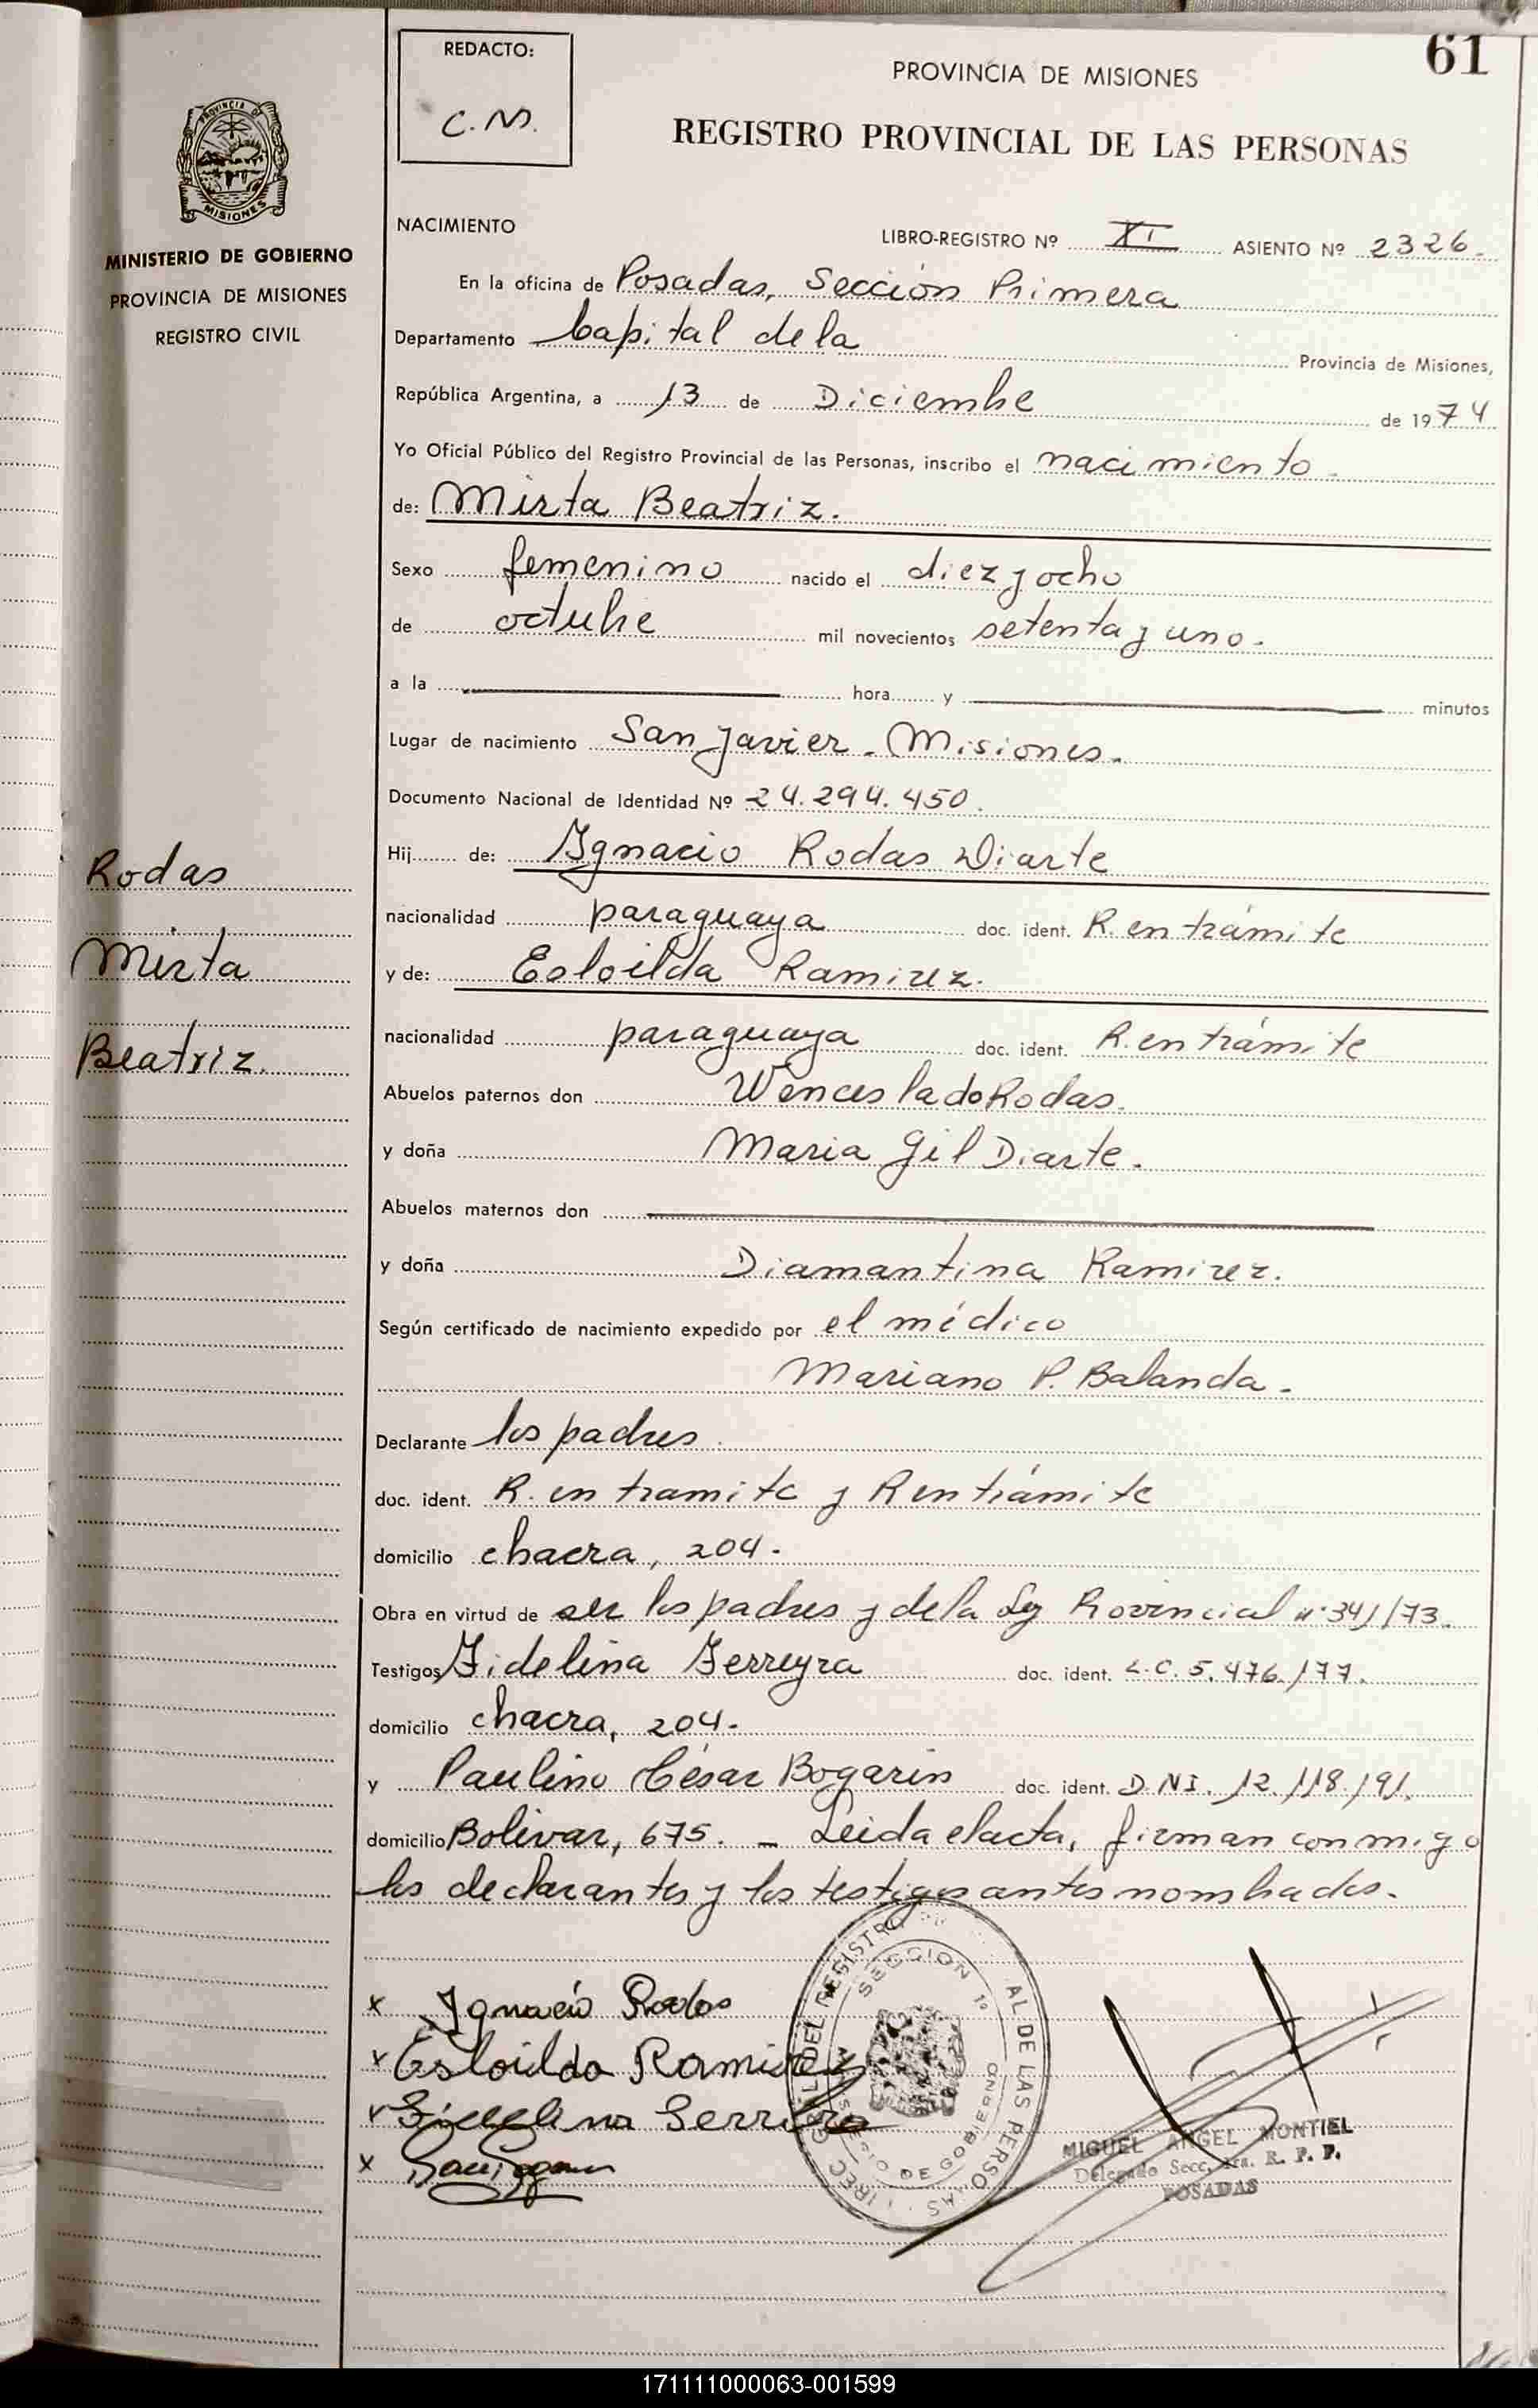 61
REDACTO:
C.M.
PROVINCIA DE MISIONES
REGISTRO PROVINCIAL DE LAS PERSONAS
PROVINCIA DE
MISIONES
MINISTERIO DE GOBIERNO
PROVINCIA DE MISIONES
REGISTRO CIVIL
NACIMIENTO
LIBRO-REGISTRO Nº XI ASIENTO Nº 2326.
En la oficina de Posadas, Sección Primera
Departamento Capital de la Provincia de Misiones,
República Argentina, a 13 de Diciembre de 1974
Yo Oficial Público del Registro Provincial de las Personas, inscribo el nacimiento.
de: Mirta Beatriz.
Sexo femenino nacido el diez y ocho
de octubre mil novecientos setenta y uno.
a la hora y minutos
Lugar de nacimiento San Javier. Misiones.
Documento Nacional de Identidad Nº 24.294.450.
Hij de: Ignacio Rodas Diarte
nacionalidad paraguaya doc. ident. R. en trámite
y de: Esloilda Ramirez.
nacionalidad paraguaya doc. ident. R. en trámite
Abuelos paternos don Wenceslado Rodas.
y doña Maria Gil Diarte.
Abuelos maternos don
y doña Diamantina Ramirez.
Según certificado de nacimiento expedido por el médico
Mariano P. Balanda.
Declarante los padres.
doc. ident. R. en tramite y R en trámite
domicilio chacra, 204.
Obra en virtud de ser los padres y de la Ley Provincial nº 341/73.
Testigos Fidelina Ferreyra doc. ident. L.C. 5.476.177.
domicilio chacra, 204.
y Paulino César Bogarin doc. ident. D.NI. 12.118.191.
domicilio Bolivar, 675. - Leida el acta, firman conmigo
los declarantes y los testigos antes nombrados.
Rodas
Mirta
Beatriz.
x Ignacio Rodas
x Esloilda Ramirez
x
x
SECCION 1ª
AL DE LAS PERSONAS
DEL REGISTRO
DE GOBIERNO
MIGUEL ANGEL MONTIEL
Delegado Secc. 1ra. R. P. P.
POSADAS
171111000063-001599